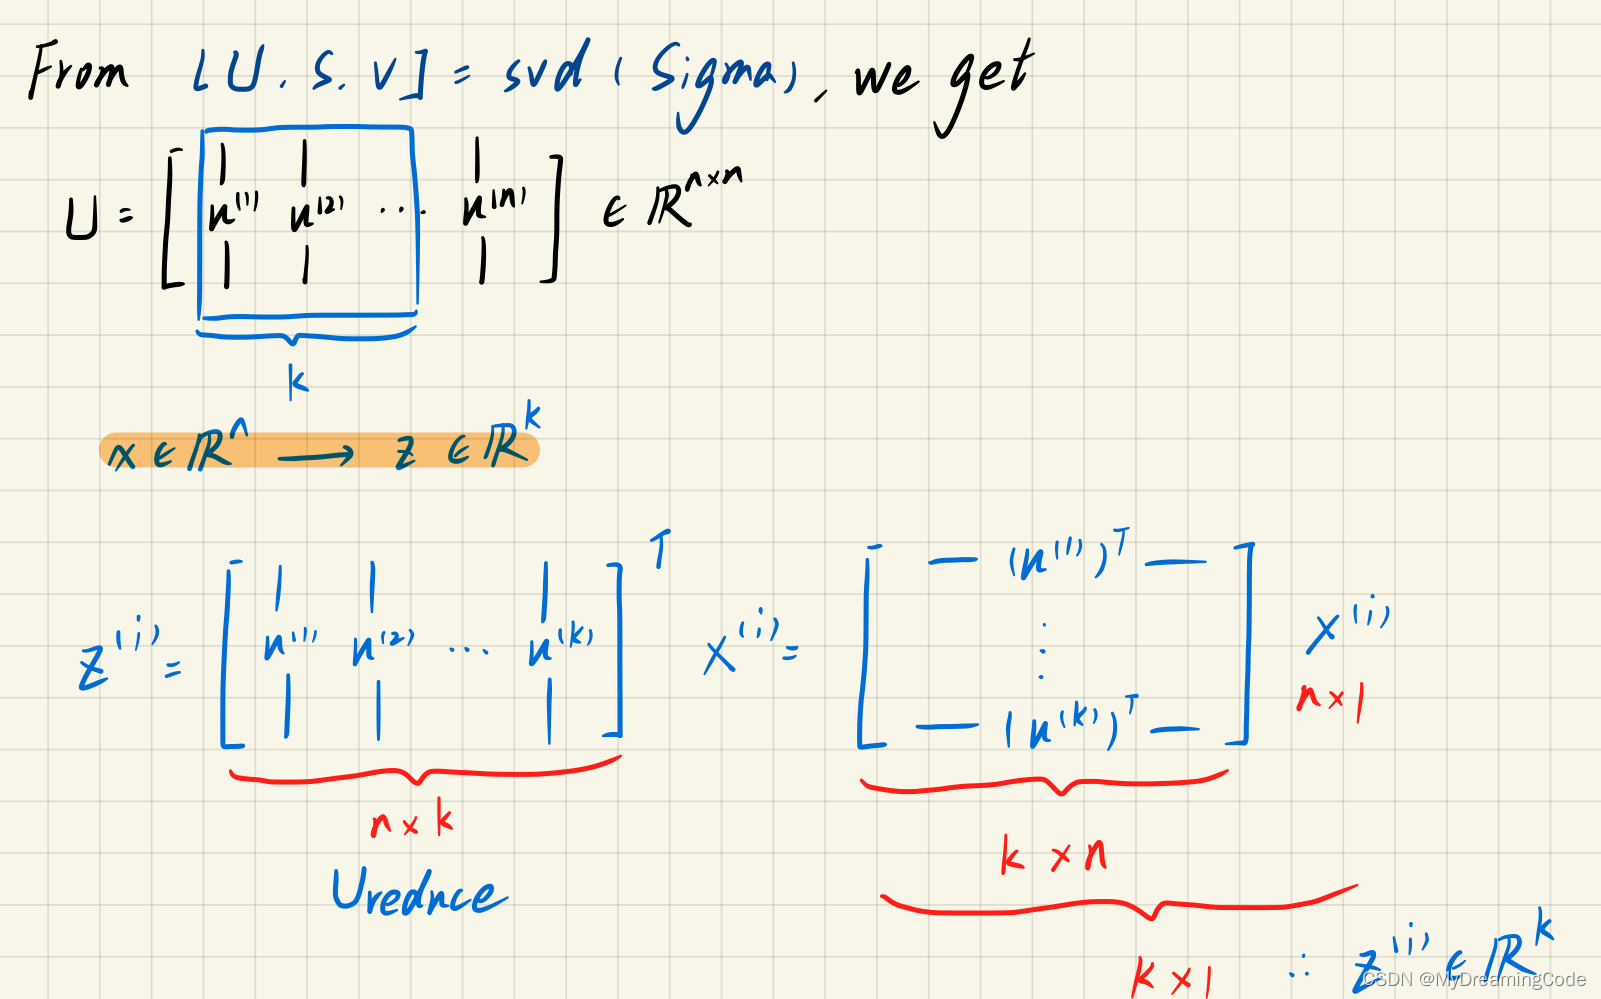 From [U, S, V] = svd(Sigma), we get
U = [ | | | u^(1) u^(2) ... u^(n) | | | ] ∈ ℝ^(n×n)
k
x ∈ ℝ^n → z ∈ ℝ^k
z^(i) = [ | | | u^(1) u^(2) ... u^(k) | | | ]^T x^(i) = [ — (u^(1))^T — ⋮ — (u^(k))^T — ] x^(i)
n×k k×n n×1
Ureduce
k×1 ∴ z^(i) ∈ ℝ^k
CSDN @MyDreamingCode